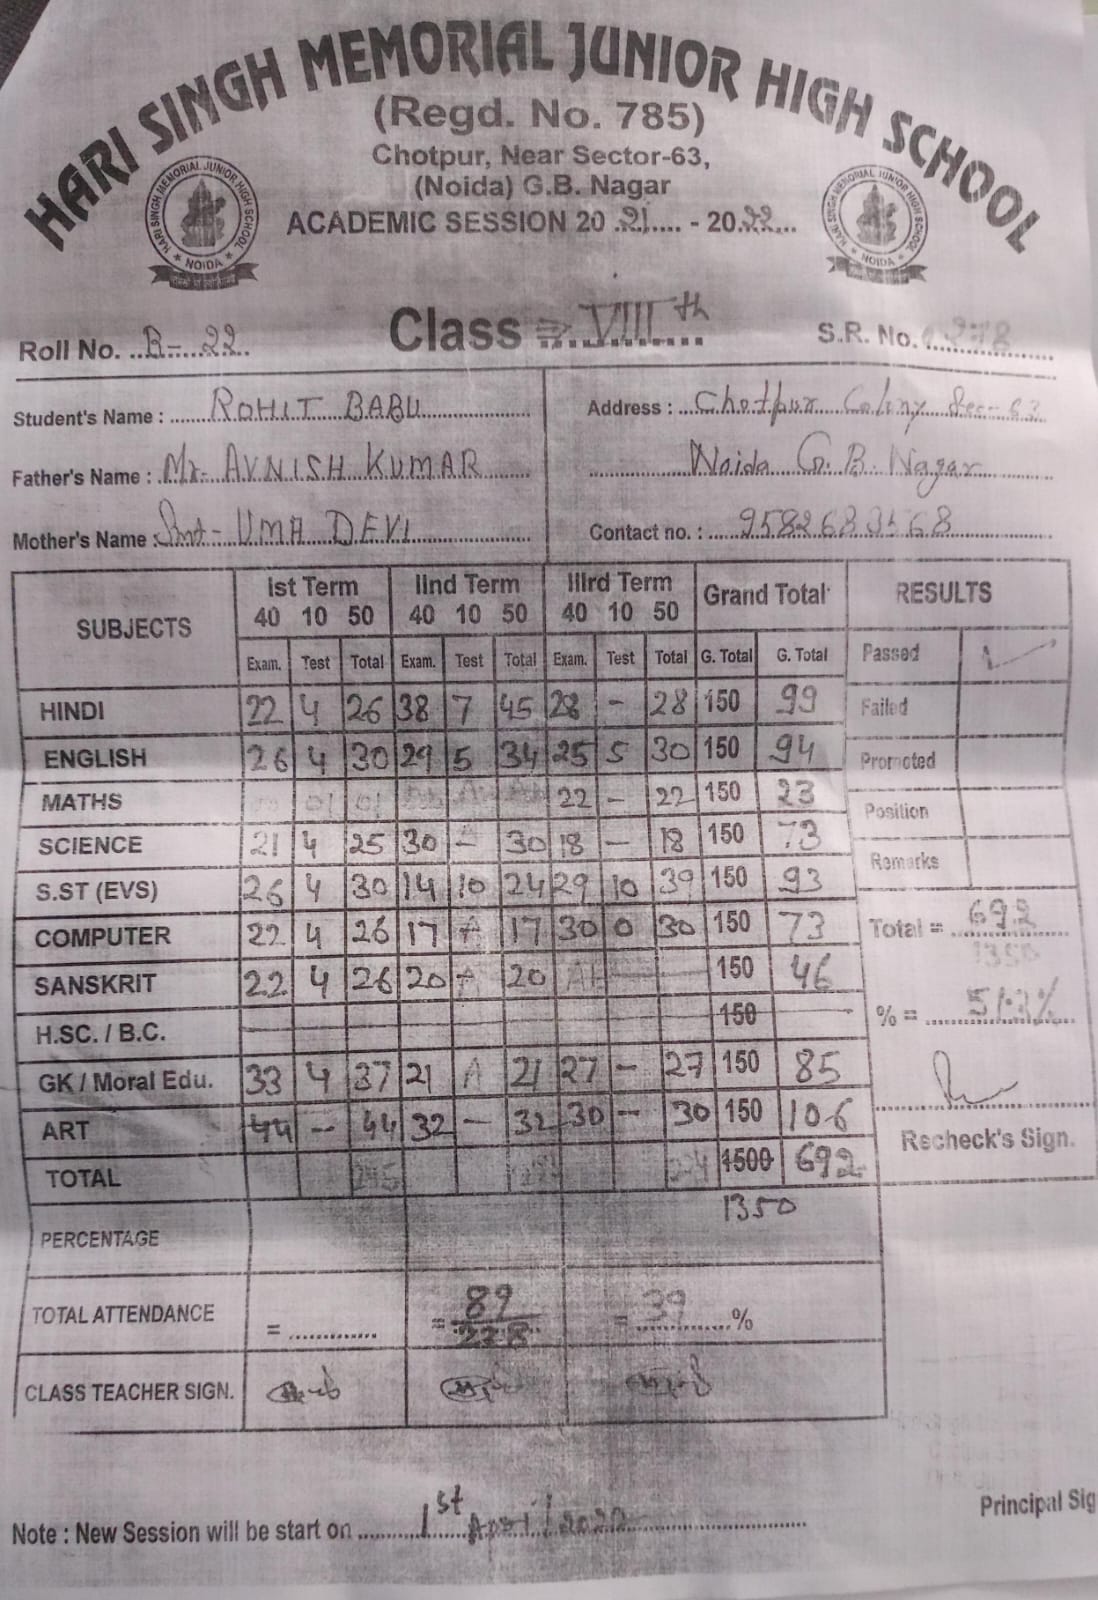 HARI SINGH MEMORIAL JUNIOR HIGH SCHOOL
(Regd. No. 785)
Chotpur, Near Sector-63,
(Noida) G.B. Nagar
ACADEMIC SESSION 20 21.... - 20.22...
Roll No. ..B-...22. Class VIII th S.R. No.
Student's Name : ROHIT BABU Address : Chotpur Colony Sec-63
Father's Name : Mr. AVNISH KUMAR Noida G.B. Nagar
Mother's Name : Smt- UMA DEVI Contact no. :
SUBJECTS Ist Term IInd Term IIIrd Term Grand Total RESULTS
40 10 50 40 10 50 40 10 50
Exam. Test Total Exam. Test Total Exam. Test Total G. Total G. Total Passed ✓
HINDI 22 4 26 38 7 45 28 - 28 150 99 Failed
ENGLISH 26 4 30 29 5 34 25 5 30 150 94 Promoted
MATHS 22 - 22 150 23 Position
SCIENCE 21 4 25 30 - 30 18 - 18 150 73 Remarks
S.ST (EVS) 26 4 30 14 10 24 29 10 39 150 93
COMPUTER 22 4 26 17 A 17 30 0 30 150 73 Total = 692
1350
SANSKRIT 22 4 26 20 A 20 150 46
H.SC. / B.C. 150 % = 51.2%
GK / Moral Edu. 33 4 37 21 A 21 27 - 27 150 85
ART 44 - 44 32 - 32 30 - 30 150 106 Recheck's Sign.
TOTAL 1500 692
1350
PERCENTAGE
TOTAL ATTENDANCE = ............. = 89 = 39 %
228
CLASS TEACHER SIGN.
Note : New Session will be start on 1st April 2022
Principal Sig